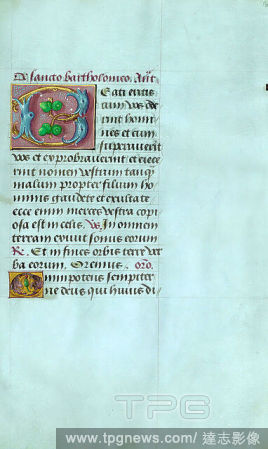 De sancto bartholomeo. Añt.
Beati eritis
cum vos ode
rint homi
nes et cum
separaverint
vos et exprobraverint et eiece
rint nomen vestrum tanq̃
malum propter filium ho
minis gaudete et exultate
ecce enim merces vestra copi
osa est in celis. Vs. In omnem
terram exivit sonus eorum
R. Et in fines orbis terre ver
ba eorum. Oremus. oro.
Omnipotens sempiter
ne deus qui huius di
TPG
www.tpgnews.com/ 達志影像